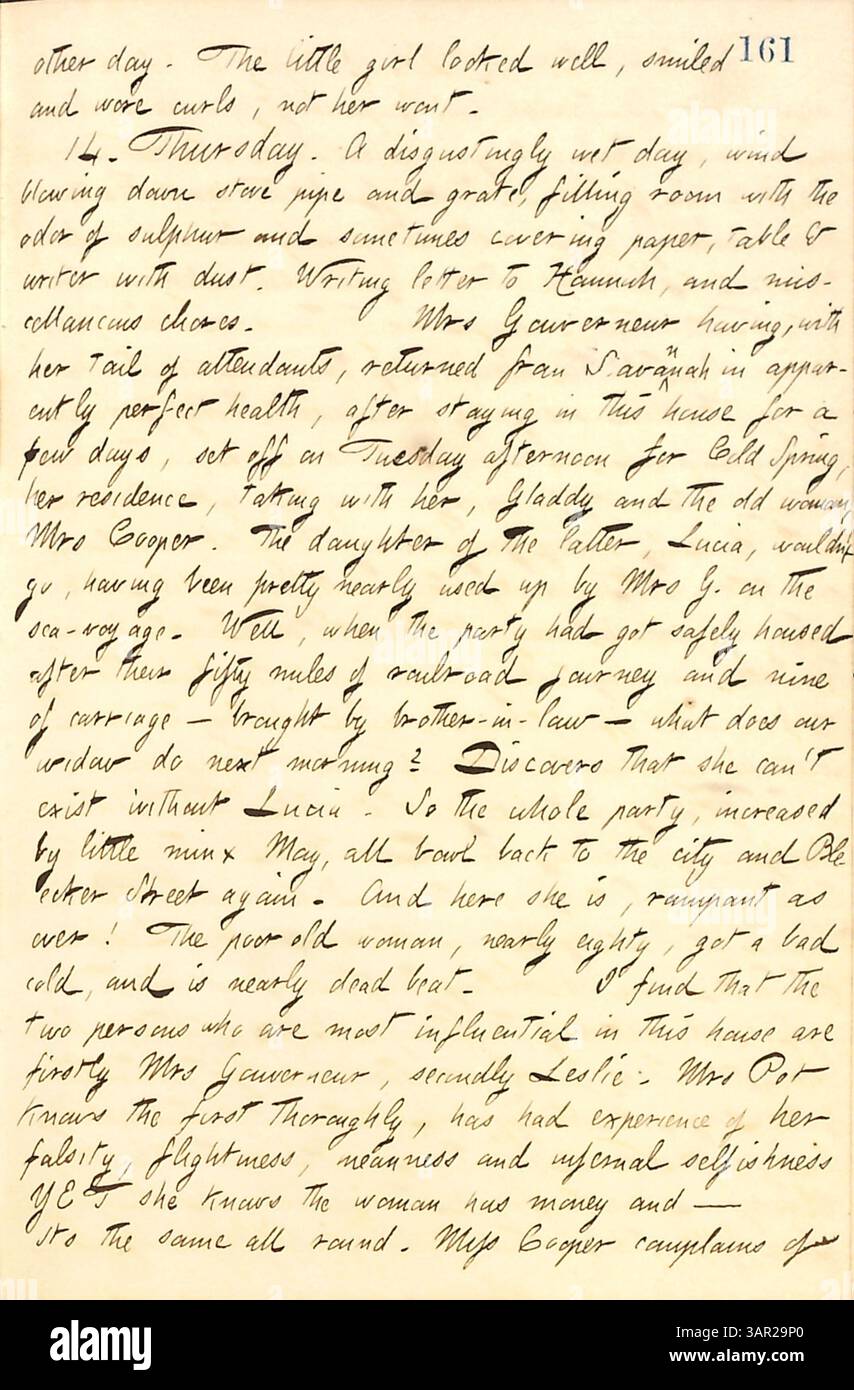 161
other day. The little girl looked well, smiled
and wore curls, not her wont.
14. Thursday. A disgustingly wet day, wind
blowing down stove pipe and grate, filling room with the
odor of sulphur and sometimes covering paper, table &
writer with dust. Writing letter to Hannah, and mis-
cellaneous chores. Mrs Gouverneur having, with
her tail of attendants, returned from Savannah in appar-
ently perfect health, after staying in this house for a
few days, set off on Tuesday afternoon for Cold Spring,
her residence, taking with her, Gladdy and the old woman,
Mrs Cooper. The daughter of the latter, Lucia, wouldn't
go, having been pretty nearly used up by Mrs G. on the
sea-voyage. Well, when the party had got safely housed
after their fifty miles of railroad journey and nine
of carriage — brought by brother-in-law — what does our
widow do next morning? Discovers that she can't
exist without Lucia. So the whole party, increased
by little minx May, all bowl back to the city and Ble-
ecker Street again. And here she is, rampant as
ever! The poor old woman, nearly eighty, got a bad
cold, and is nearly dead beat. I find that the
two persons who are most influential in this house are
firstly Mrs Gouverneur, secondly Leslie. Mrs Pot
knows the first thoroughly, has had experience of her
falsity, flightiness, meanness and infernal selfishness
YET she knows the woman has money and —
its the same all round. Miss Cooper complains of
alamy
Image ID: 3AR29P0
www.alamy.com